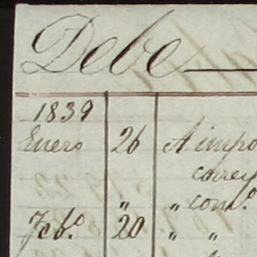 Debe
1839
Enero 26 A impo
correy
" " com.º
Feb.º 20 " "